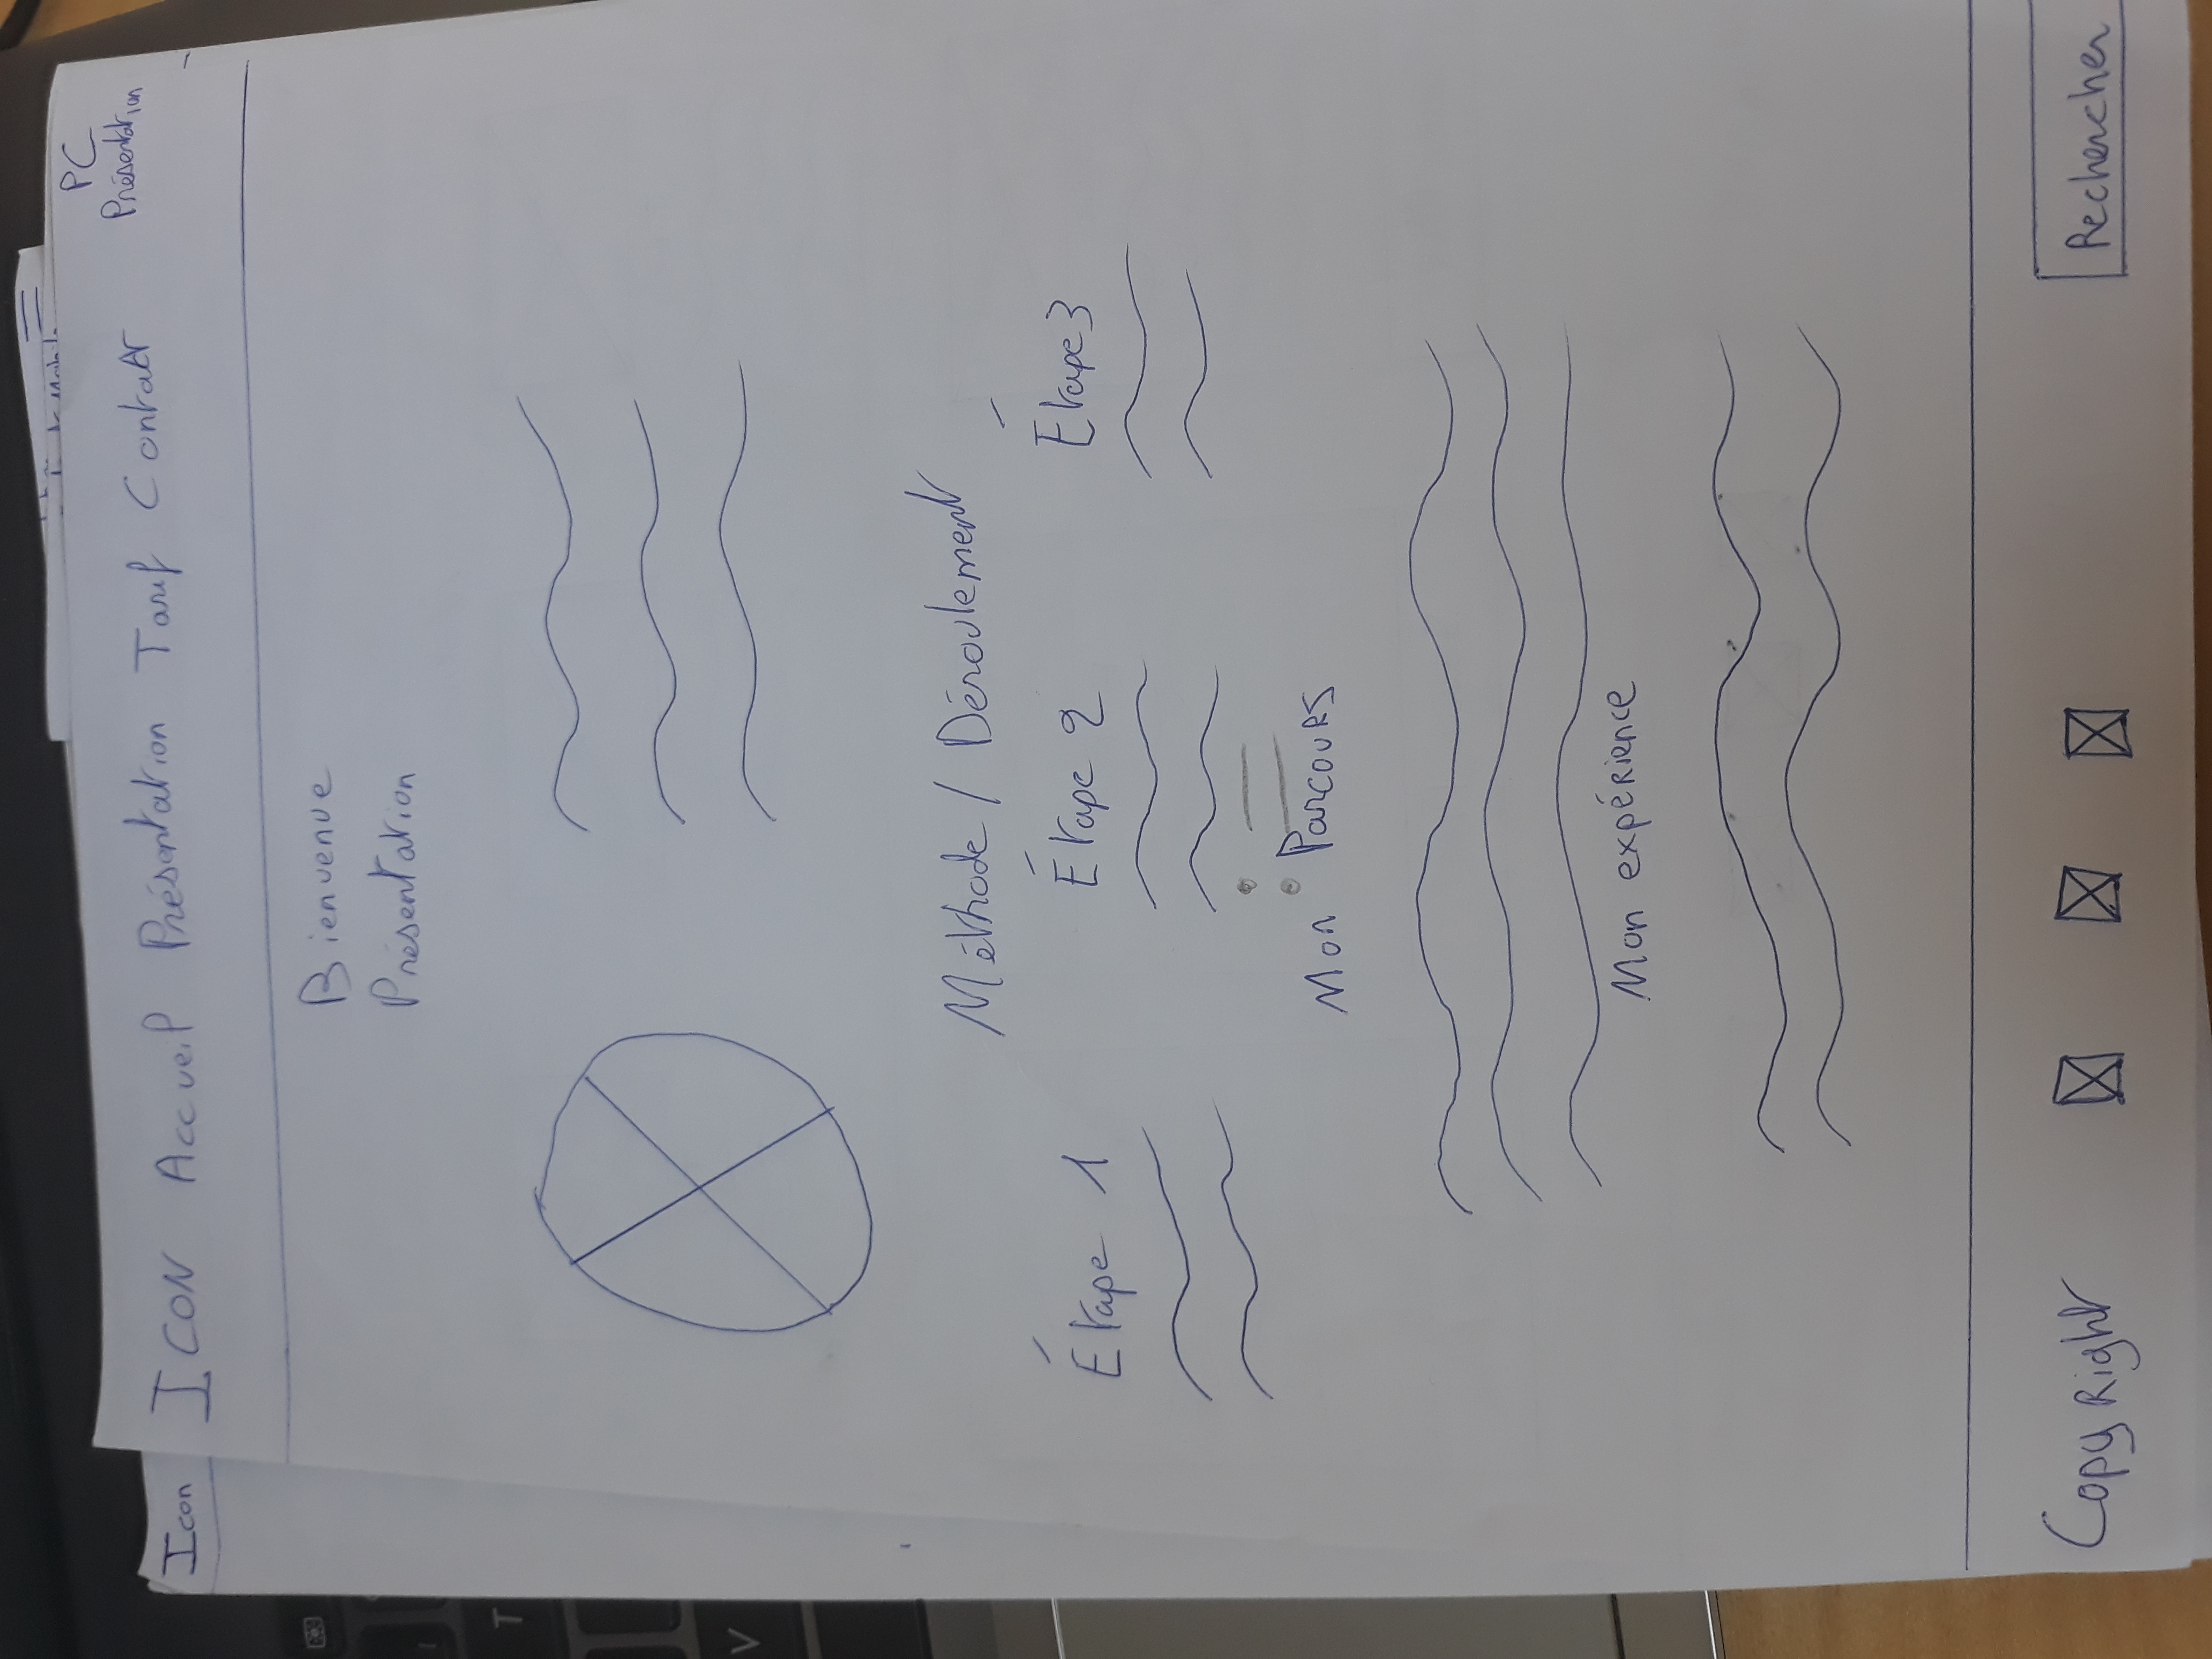 PC
Présentation
ICON Accueil Présentation Tarif Contact
Icon
Bienvenue
Présentation
Méthode / Déroulement
Étape 1 Étape 2 Étape 3
Mon Parcours
Mon expérience
Copyright Rechercher
T
V